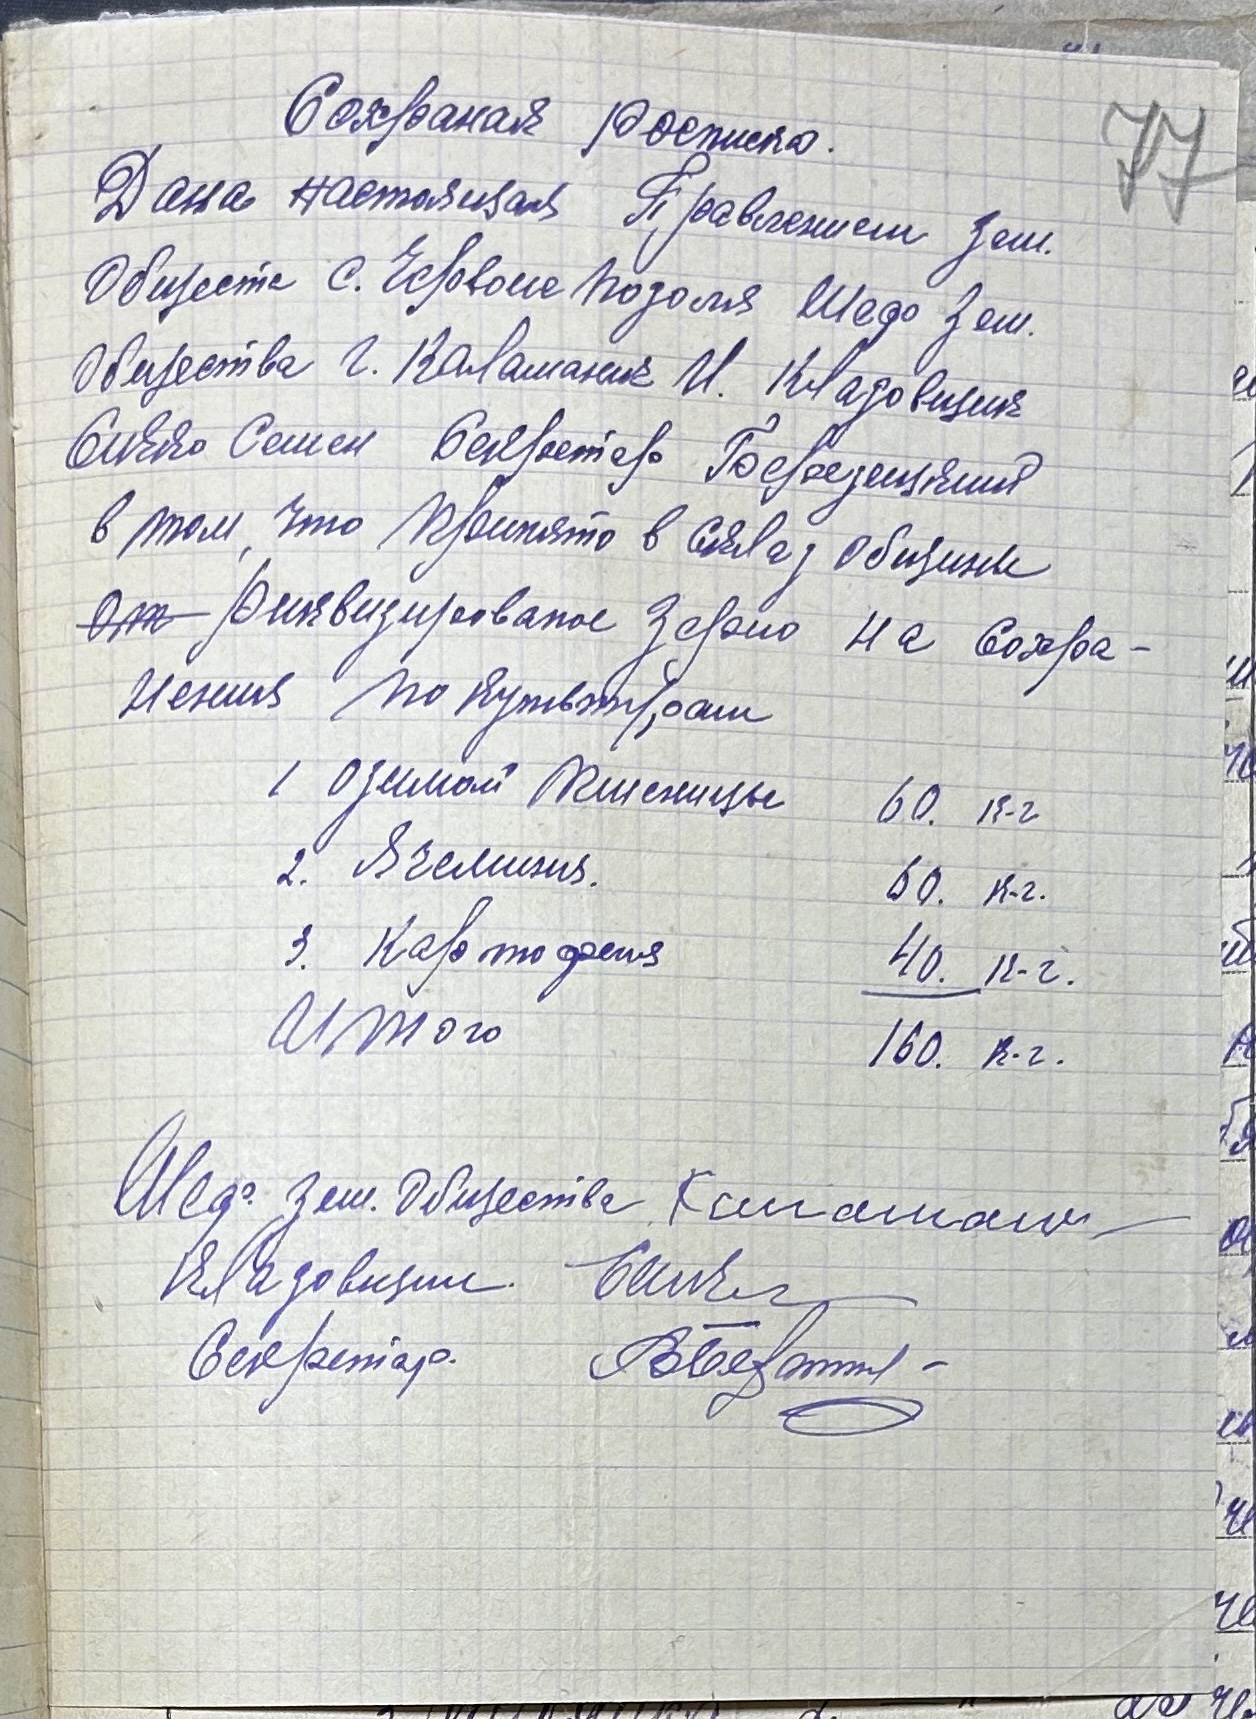 77
Сохраная росписка.
Дана настоящая Правлением Зем.
Обществ с. Червоне Подолля Шедо Зем.
Общества г. Каламаник И. Кладовщик
Синко Семен Секретарь
в том, что принято в склад общины
от риквизированое зерно на сохра-
нения по культурам
1 Озимой пшеницы 60. к-г
2. Ячминя. 60. к-г.
3. Картофеля 40. к-г.
Итого 160. к-г.
Шедо Зем. Общества
Кладовщик. Синко
Секретар.